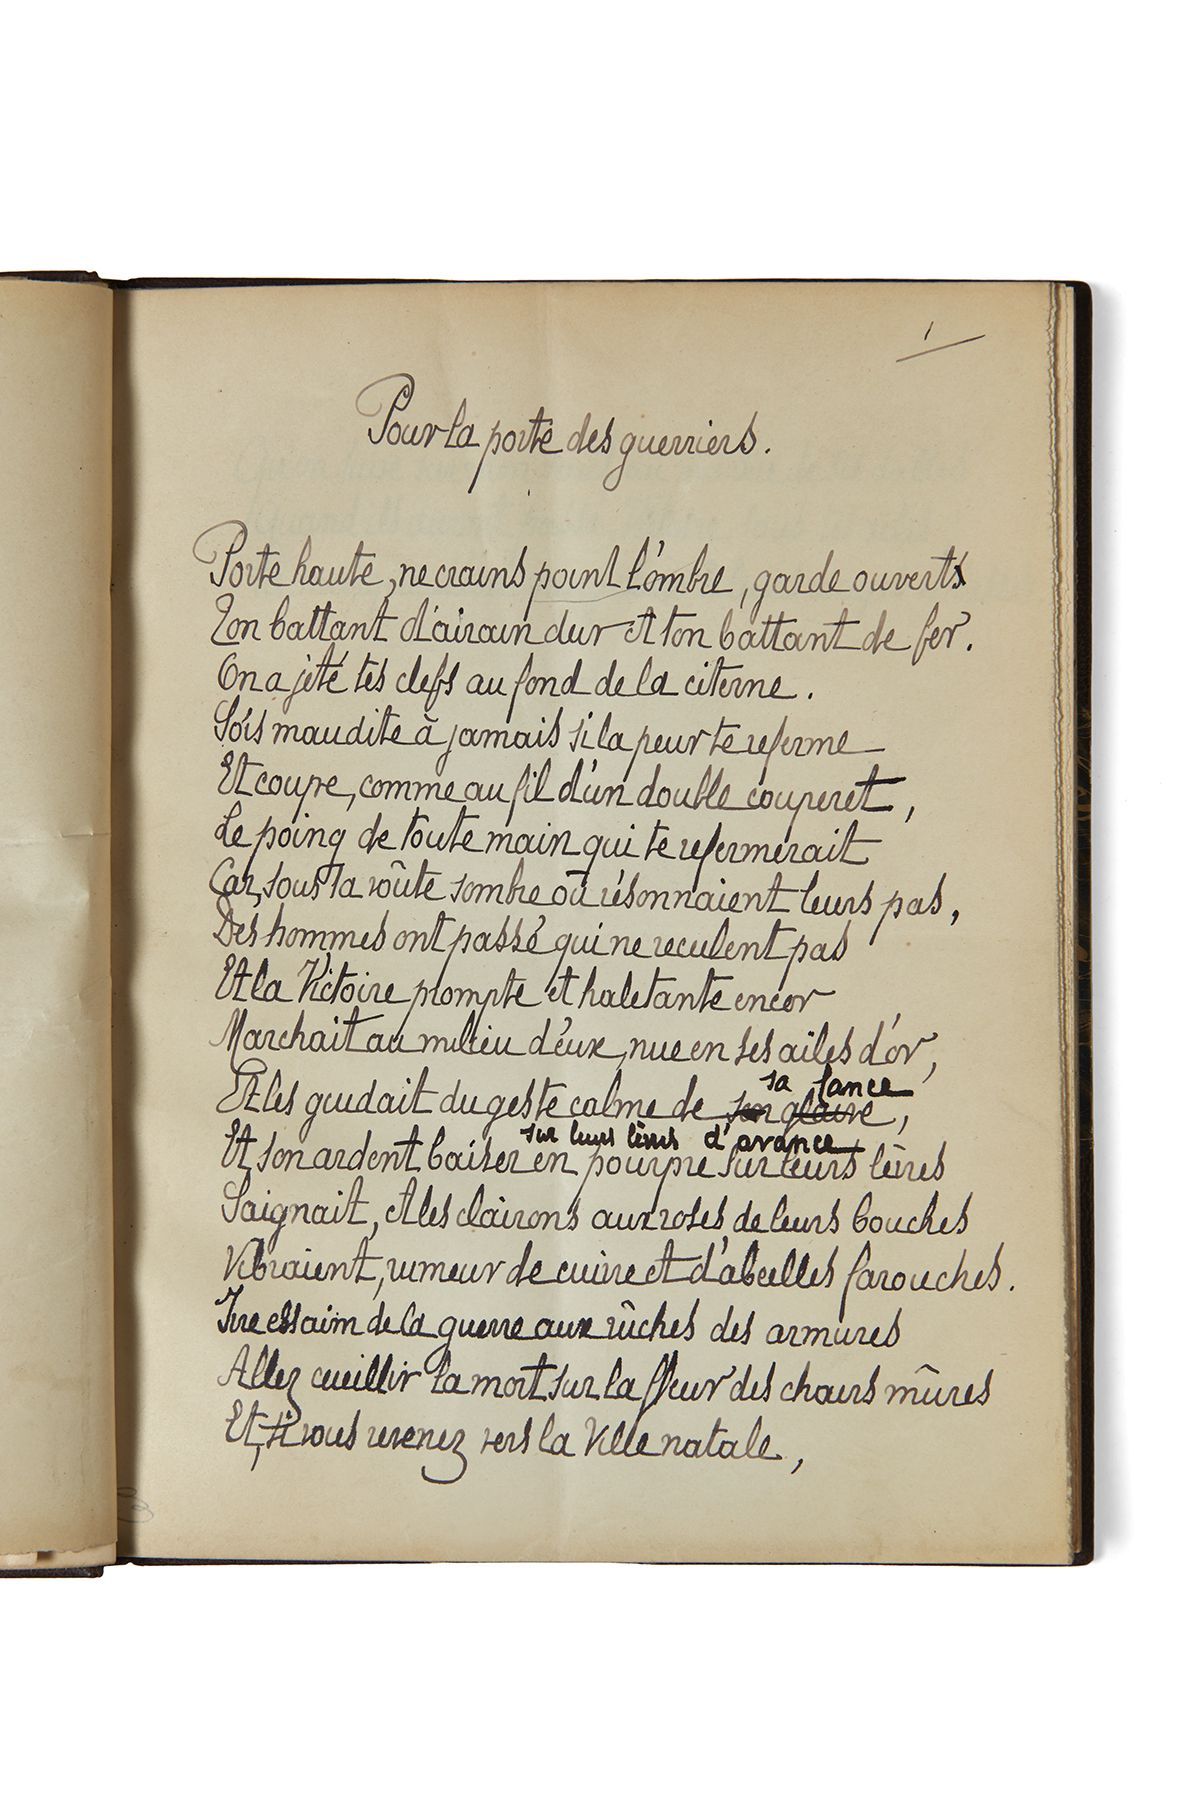 1
Pour la porte des guerriers.
Porte haute, ne crains point l'ombre, garde ouverts
Ton battant d'airain dur et ton battant de fer.
On a jeté tes clefs au fond de la citerne.
Sois maudite à jamais si la peur te referme
Et coupe, comme au fil d'un double couperet,
Le poing de toute main qui te refermerait
Car, sous ta voûte sombre où résonnaient leurs pas,
Des hommes ont passé qui ne reculent pas
Et la Victoire prompte et haletante encor
Marchait au milieu d'eux, nue en ses ailes d'or,
sa lance
Et les guidait du geste calme de son glaive,
sur leurs lèvres d'avance
Et son ardent baiser en pourpre sur leurs lèvres
Saignait, et les clairons aux roses de leurs bouches
Vibraient, rumeur de cuivre et d'abeilles farouches.
Ivre essaim de la guerre aux rûches des armures
Allez cueillir la mort sur la fleur des chairs mûres
Et, si vous revenez vers la Ville natale,